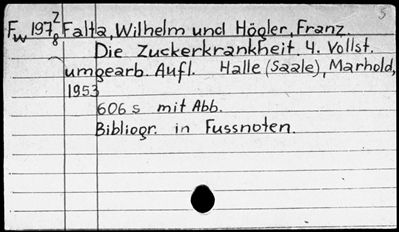 5
Fw 197 2/8 Falta, Wilhelm und Högler, Franz.
Die Zuckerkrankheit. 4. Vollst.
umgearb. Aufl. Halle (Saale), Marhold,
1953
606 s mit Abb.
Bibliogr. in Fussnoten.